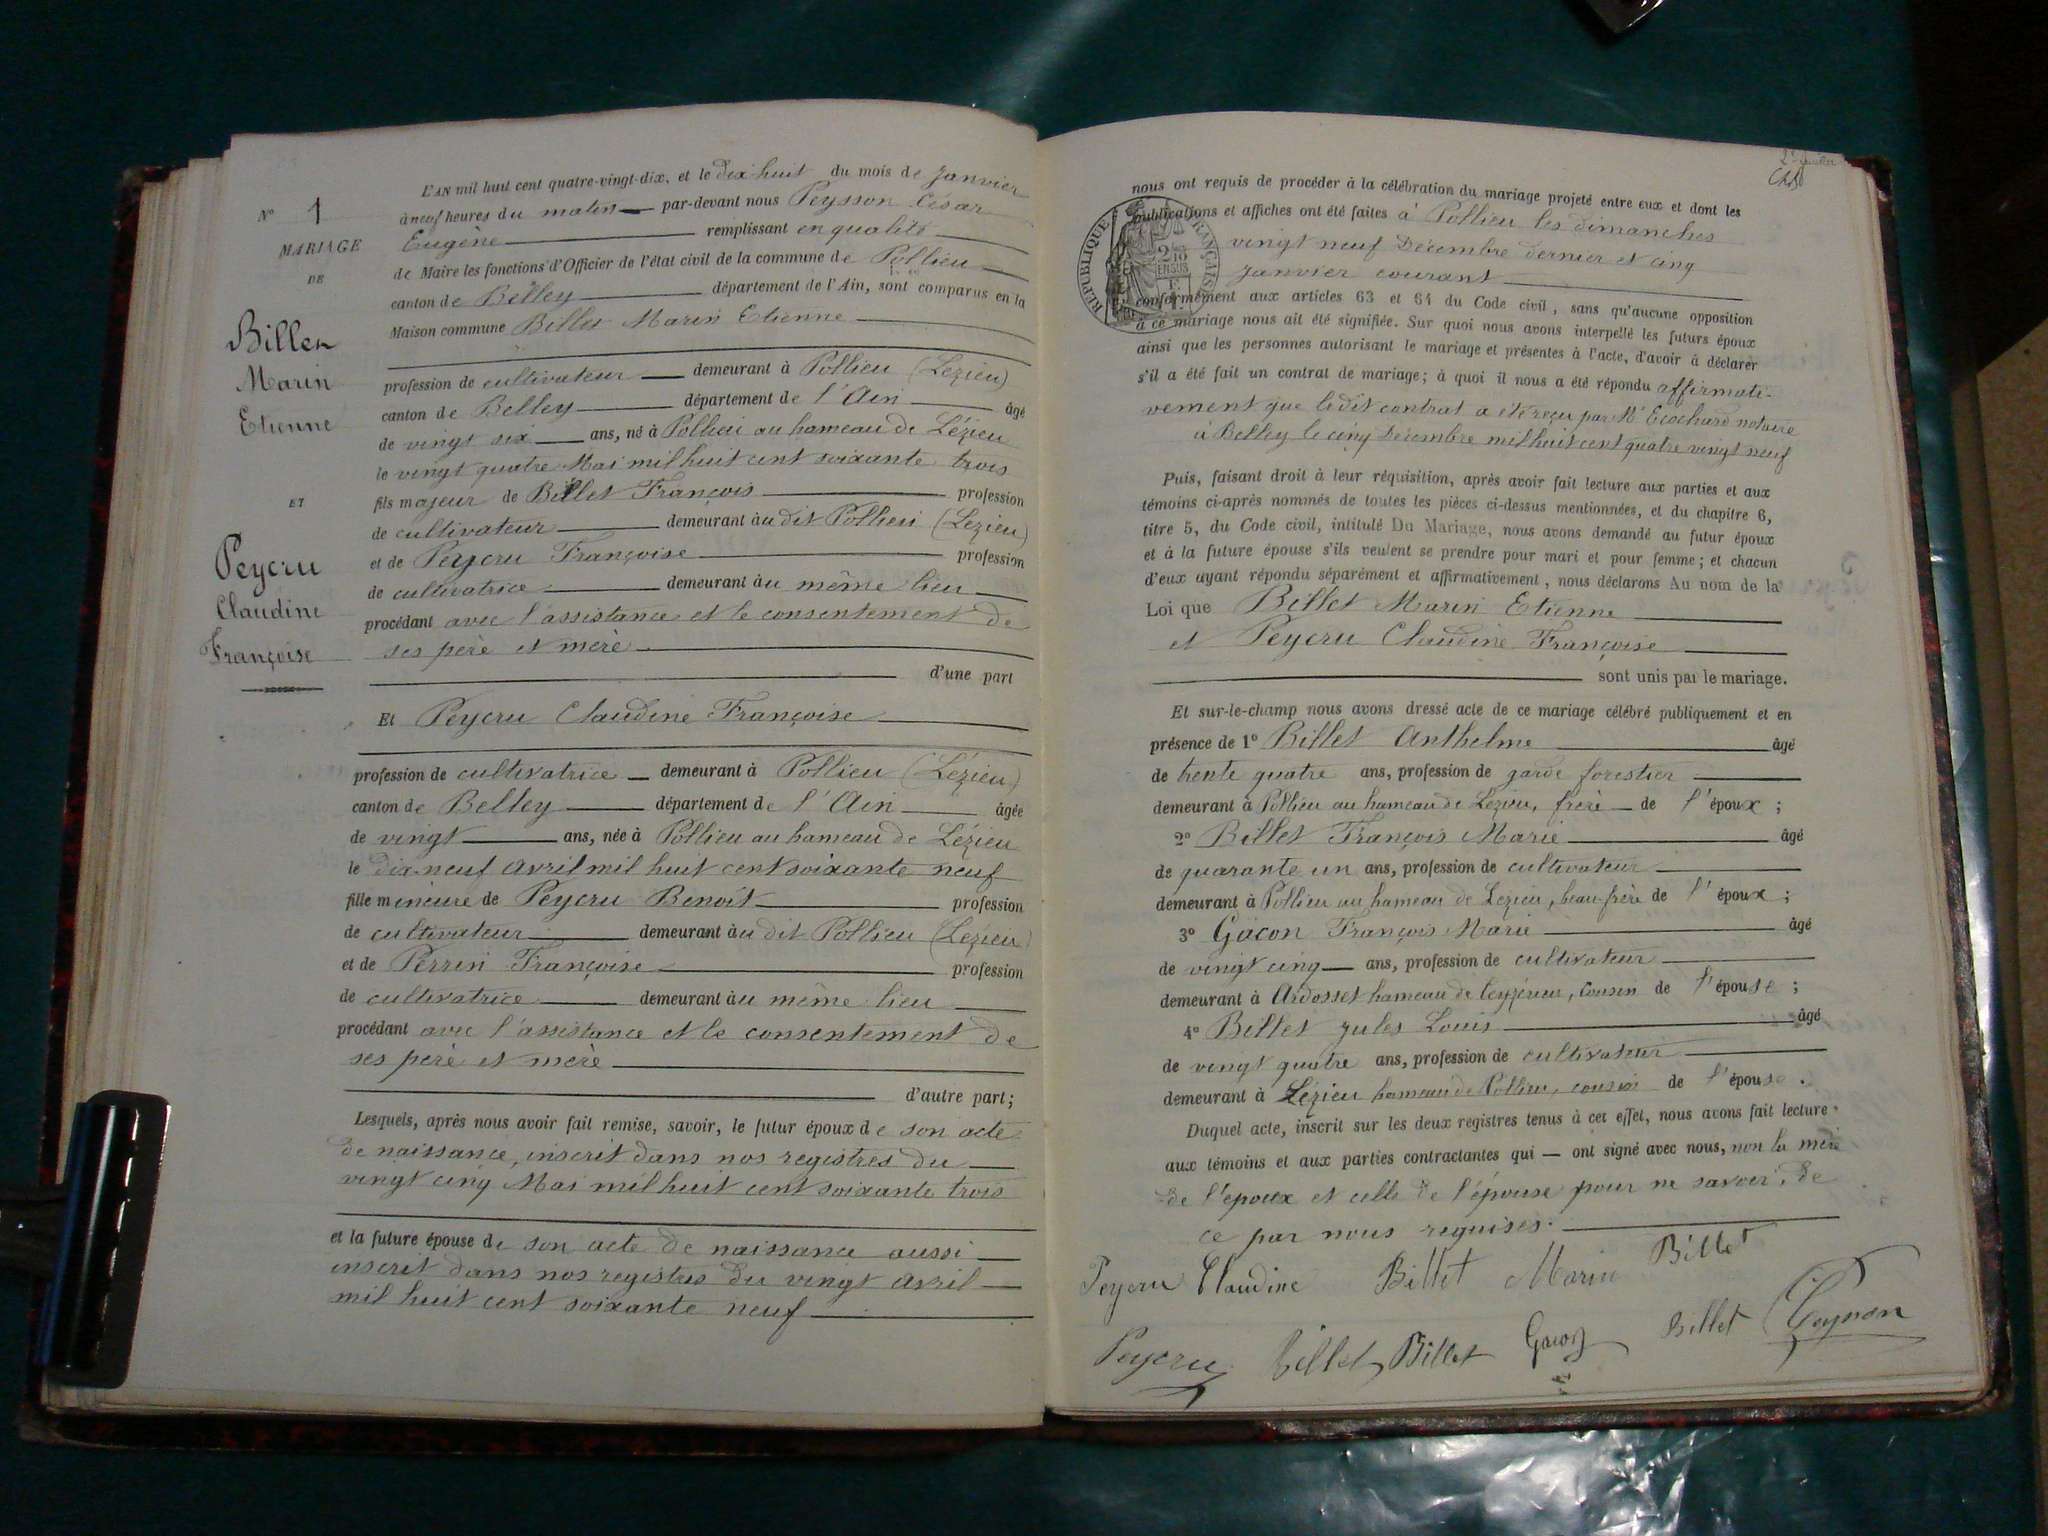 N° 1
MARIAGE
DE
Billet
Marin
Etienne
ET
Peycru
Claudine
Françoise
L'AN mil huit cent quatre-vingt-dix, et le dix-huit du mois de Janvier
à neuf heures du matin par-devant nous Peysson César
Eugène remplissant en qualité
de Maire les fonctions d'Officier de l'état civil de la commune de Pollieu
canton de Belley département de l'Ain, sont comparus en la
Maison commune Billet Marin Etienne
profession de cultivateur demeurant à Pollieu (Lézieu)
canton de Belley département de l'Ain âgé
de vingt six ans, né à Pollieu au hameau de Lézieu
le vingt quatre Mai mil huit cent soixante trois
fils majeur de Billet François profession
de cultivateur demeurant àu dit Pollieu (Lézieu)
et de Peycru Françoise profession
de cultivatrice demeurant àu même lieu
procédant avec l'assistance et le consentement de
ses père et mère
d'une part
Et Peycru Claudine Françoise
profession de cultivatrice demeurant à Pollieu (Lézieu)
canton de Belley département de l'Ain âgée
de vingt ans, née à Pollieu au hameau de Lézieu
le dix-neuf avril mil huit cent soixante neuf
fille mineure de Peycru Benoît profession
de cultivateur demeurant àu dit Pollieu (Lézieu)
et de Perrin Françoise profession
de cultivatrice demeurant àu même lieu
procédant avec l'assistance et le consentement de
ses père et mère
d'autre part;
Lesquels, après nous avoir fait remise, savoir, le futur époux de son acte
de naissance, inscrit dans nos registres du
vingt cinq Mai mil huit cent soixante trois
et la future épouse de son acte de naissance aussi
inscrit dans nos registres du vingt avril
mil huit cent soixante neuf
nous ont requis de procéder à la célébration du mariage projeté entre eux et dont les
publications et affiches ont été faites à Pollieu les dimanches
vingt neuf Décembre dernier et cinq
Janvier courant
conformément aux articles 63 et 64 du Code civil, sans qu'aucune opposition
à ce mariage nous ait été signifiée. Sur quoi nous avons interpellé les futurs époux
ainsi que les personnes autorisant le mariage et présentes à l'acte, d'avoir à déclarer
s'il a été fait un contrat de mariage; à quoi il nous a été répondu affirmati-
vement que le dit contrat a été reçu par Me Ecochard notaire
à Belley le cinq Décembre mil huit cent quatre vingt neuf
Puis, faisant droit à leur réquisition, après avoir fait lecture aux parties et aux
témoins ci-après nommés de toutes les pièces ci-dessus mentionnées, et du chapitre 6,
titre 5, du Code civil, intitulé Du Mariage, nous avons demandé au futur époux
et à la future épouse s'ils veulent se prendre pour mari et pour femme; et chacun
d'eux ayant répondu séparément et affirmativement, nous déclarons Au nom de la
Loi que Billet Marin Etienne
et Peycru Claudine Françoise
sont unis par le mariage.
Et sur-le-champ nous avons dressé acte de ce mariage célébré publiquement et en
présence de 1° Billet Anthelme âgé
de trente quatre ans, profession de garde forestier
demeurant à Pollieu au hameau de Lézieu, frère de l'époux;
2° Billet François Marie âgé
de quarante un ans, profession de cultivateur
demeurant à Pollieu au hameau de Lézieu, beau-frère de l'époux;
3° Gacon François Marie âgé
de vingt cinq ans, profession de cultivateur
demeurant à Ardosset hameau de Ceyzérieu, cousin de l'épouse;
4° Billet Jules Louis âgé
de vingt quatre ans, profession de cultivateur
demeurant à Lézieu hameau de Pollieu, cousin de l'épouse.
Duquel acte, inscrit sur les deux registres tenus à cet effet, nous avons fait lecture
aux témoins et aux parties contractantes qui ont signé avec nous, non la mère
de l'époux et celle de l'épouse pour ne savoir, de
ce par nous requises.
Peycru Claudine Billet Marin Billet
Peycru Billet Billet Gacon Billet Peysson
RÉPUBLIQUE FRANÇAISE